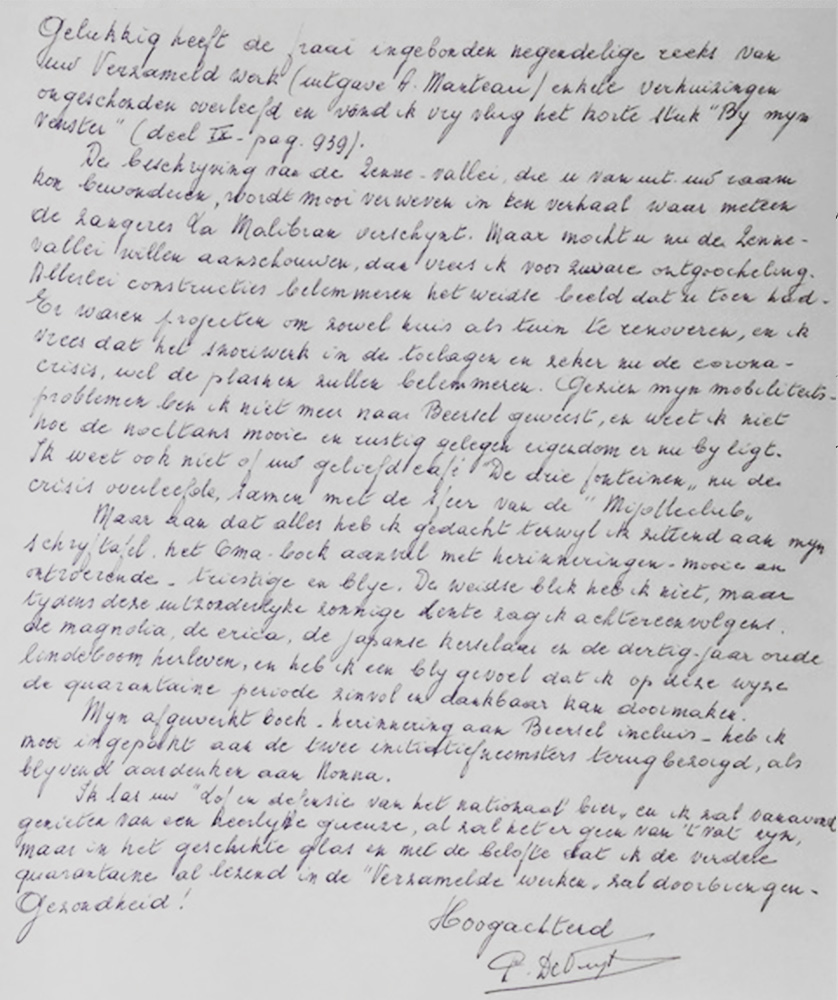 Gelukkig heeft de fraai ingebonden negendelige reeks van
uw Verzameld werk (uitgave A. Manteau) enkele verhuizingen
ongeschonden overleefd en vond ik vry vlug het korte stuk "By myn
venster" (deel IX - pag. 939).
De beschryving van de Zenne-vallei, die u van uit uw raam
kon bewonderen, wordt mooi verweven in een verhaal waar meteen
de zangeres La Malibran verschynt. Maar mocht u nu de Zenne-
vallei willen aanschouwen, dan vrees ik voor zware ontgoocheling.
Allerlei constructies belemmeren het weidse beeld dat u toen had.
Er waren projecten om zowel huis als tuin te renoveren, en ik
vrees dat het snoeiwerk in de toelagen en zeker nu de corona-
crisis, wel de plannen zullen belemmeren. Gezien myn mobiliteits-
problemen ben ik niet meer naar Beersel geweest, en weet ik niet
hoe de nochtans mooie en rustig gelegen eigendom er nu by ligt.
Ik weet ook niet of uw geliefd café "De drie fonteinen" nu de
crisis overleefde, samen met de sfeer van de "Mijolleclub"
Maar aan dat alles heb ik gedacht terwyl ik zittend aan myn
schryftafel, het Oma-boek aanvul met herinneringen - mooie en
ontroerende - triestige en blye. De weidse blik heb ik niet, maar
tydens deze uitzonderlyke zonnige lente zag ik achtereenvolgens
de magnolia, de erica, de japanse kerselaar en de dertig-jaar oude
lindeboom herleven, en heb ik een bly gevoel dat ik op deze wyze
de quarantaine periode zinvol en dankbaar kan doormaken.
Myn afgewerkt boek - herinnering aan Beersel incluis - heb ik
mooi ingepakt aan de twee initiatiefneemsters terugbezorgd, als
blyvend aandenken aan Nonna.
Ik las uw "Lof en defensie van het nationaal bier" en ik zal vanavond
genieten van een heerlyke gueuze, al zal het er geen van 't vat zyn,
maar in het geschikte glas en met de belofte dat ik de verdere
quarantaine al lezend in de "Verzamelde werken" zal doorbrengen -
Gezondheid!
Hoogachtend